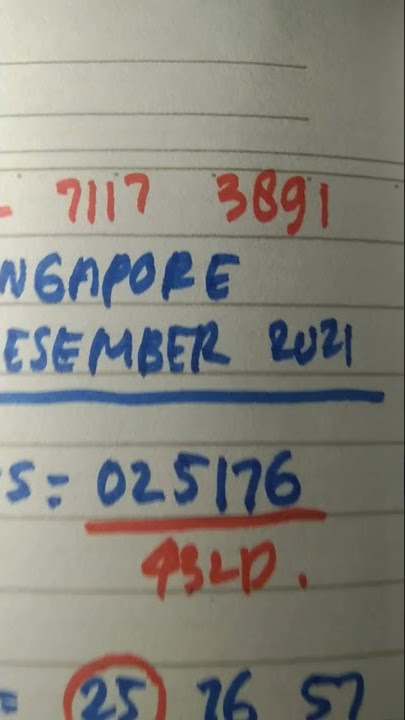 - 7117 3891
NGAPORE
ESEMBER 2021
S = 025176
432D.
= 25 76 57